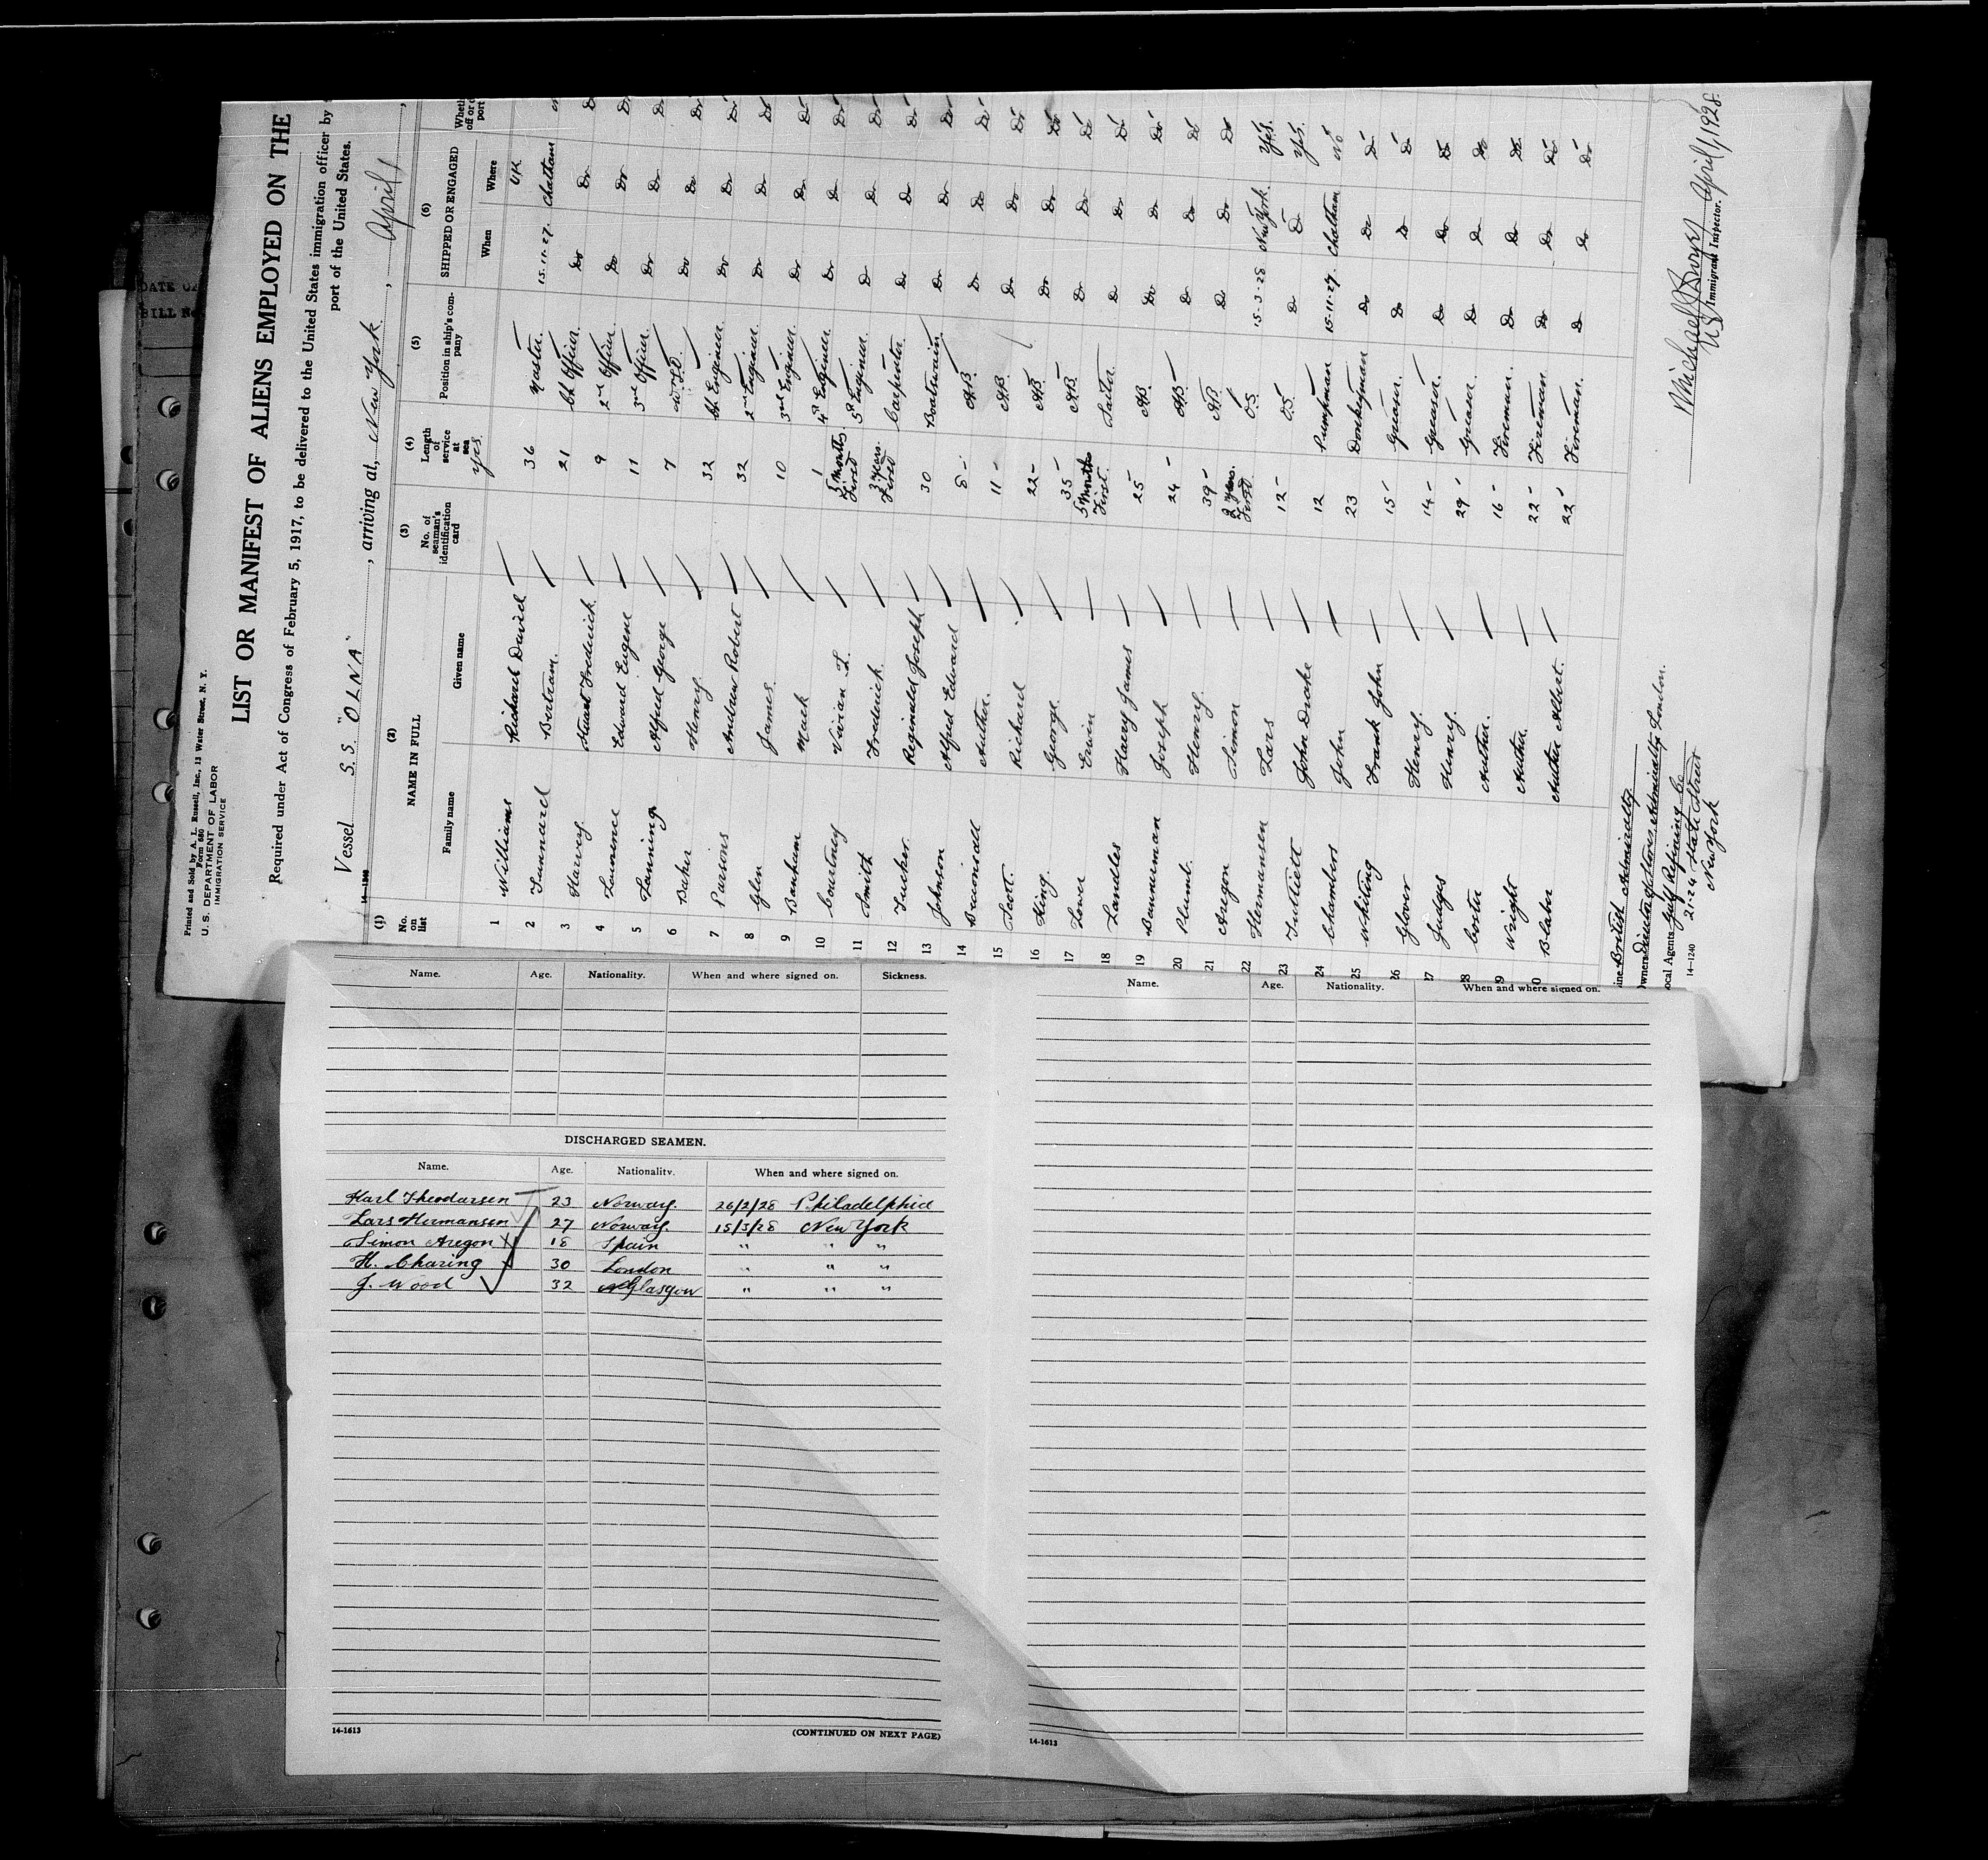 Printed and Sold by A. L. Russell, Inc., 13 Water Street, N. Y.
Form 680
U. S. DEPARTMENT OF LABOR
IMMIGRATION SERVICE
LIST OR MANIFEST OF ALIENS EMPLOYED ON THE
Required under Act of Congress of February 5, 1917, to be delivered to the United States immigration officer by
port of the United States.
Vessel S.S. "OLNA", arriving at, New York, April 1,
14-1240
(1) (2) (3) (4) (5) (6)
No. on list NAME IN FULL No. of seaman's identification card Length of service at sea Position in ship's company SHIPPED OR ENGAGED
Family name Given name yrs. When Where
1 Williams Richard David 36 Master 15.11.27. Chatham
2 Bertram 21 Ch Officer Do Do Do
3 Harvey Stuart Frederick 9 2nd Officer Do Do Do
4 Lawrence Edward Eugene 11 3rd Officer Do Do Do
5 Lanning Alfred George 7 W.T.O. Do Do Do
6 Baker Henry 32 Ch Engineer Do Do Do
7 Parsons Andrew Robert 32 2nd Engineer Do Do Do
8 Glen James 10 3rd Engineer Do Do Do
9 Banham Mack 1 4th Engineer Do Do Do
10 Courtney Vivian L. 5 months First 5th Engineer Do Do Do
11 Smith Frederick 3 years First Carpenter Do Do Do
12 Tucker Reginald Joseph 30 Boatswain Do Do Do
13 Johnson Alfred Edward 8 - AB. Do Do Do
14 Arthur. 11 - AB. Do Do Do
15 Scott. Richard 22 - AB. Do Do Do
16 King. George 35 - AB. Do Do Do
17 Erwin 5 months First Sailor Do Do Do
18 Landles Harry James 25 - AB. Do Do Do
19 Bannerman Joseph 24 - AB Do Do Do
20 Plumb. Henry. 39 - AB Do Do Do
21 Aregon Simon 2 years. First O.S. 15-3-28 New York. Yes.
22 Hermansen Lars 12 - O.S. Do Do Yes.
23 Tuttiett John Drake 12 Pumpman 15-11-27. Chatham No
24 Chambers John 23 Donkeyman Do Do Do
25 Whiting Frank John 15 - Greaser. Do Do Do
26 Glover Henry. 14 - Greaser. Do Do Do
27 Judges Henry. 29 - Greaser. Do Do Do
28 Arthur. 16 - Fireman. Do Do Do
29 Wright Arthur 22 - Fireman. Do Do Do
30 Blaber Arthur Albert. 22 - Fireman. Do Do Do
Line British Admiralty
Owners Director of Stores, Admiralty London.
Local Agents Gulf Refining Co
14-1240 21-24 State Street
New York
April 1, 1928.
US Immigrant Inspector.
Name. Age. Nationality. When and where signed on. Sickness.
DISCHARGED SEAMEN.
Name. Age. Nationality. When and where signed on.
Karl Theodorsen 23 Norway. 26/2/28 Philadelphia
Lars Hermansen 27 Norway. 15/3/28 New York
Simon Aregon X 18 Spain " " "
H. Charing 30 London " " "
J. Wood 32 Glasgow " " "
14-1613 (CONTINUED ON NEXT PAGE)
Name. Age. Nationality. When and where signed on.
14-1613